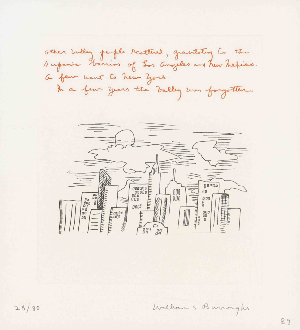 other Valley people scattered, gravitating to the
Supersonic Stations of Los Angeles and New Mexico.
A few went to New York
In a few years the Valley was forgotten
25/80
William S Burroughs